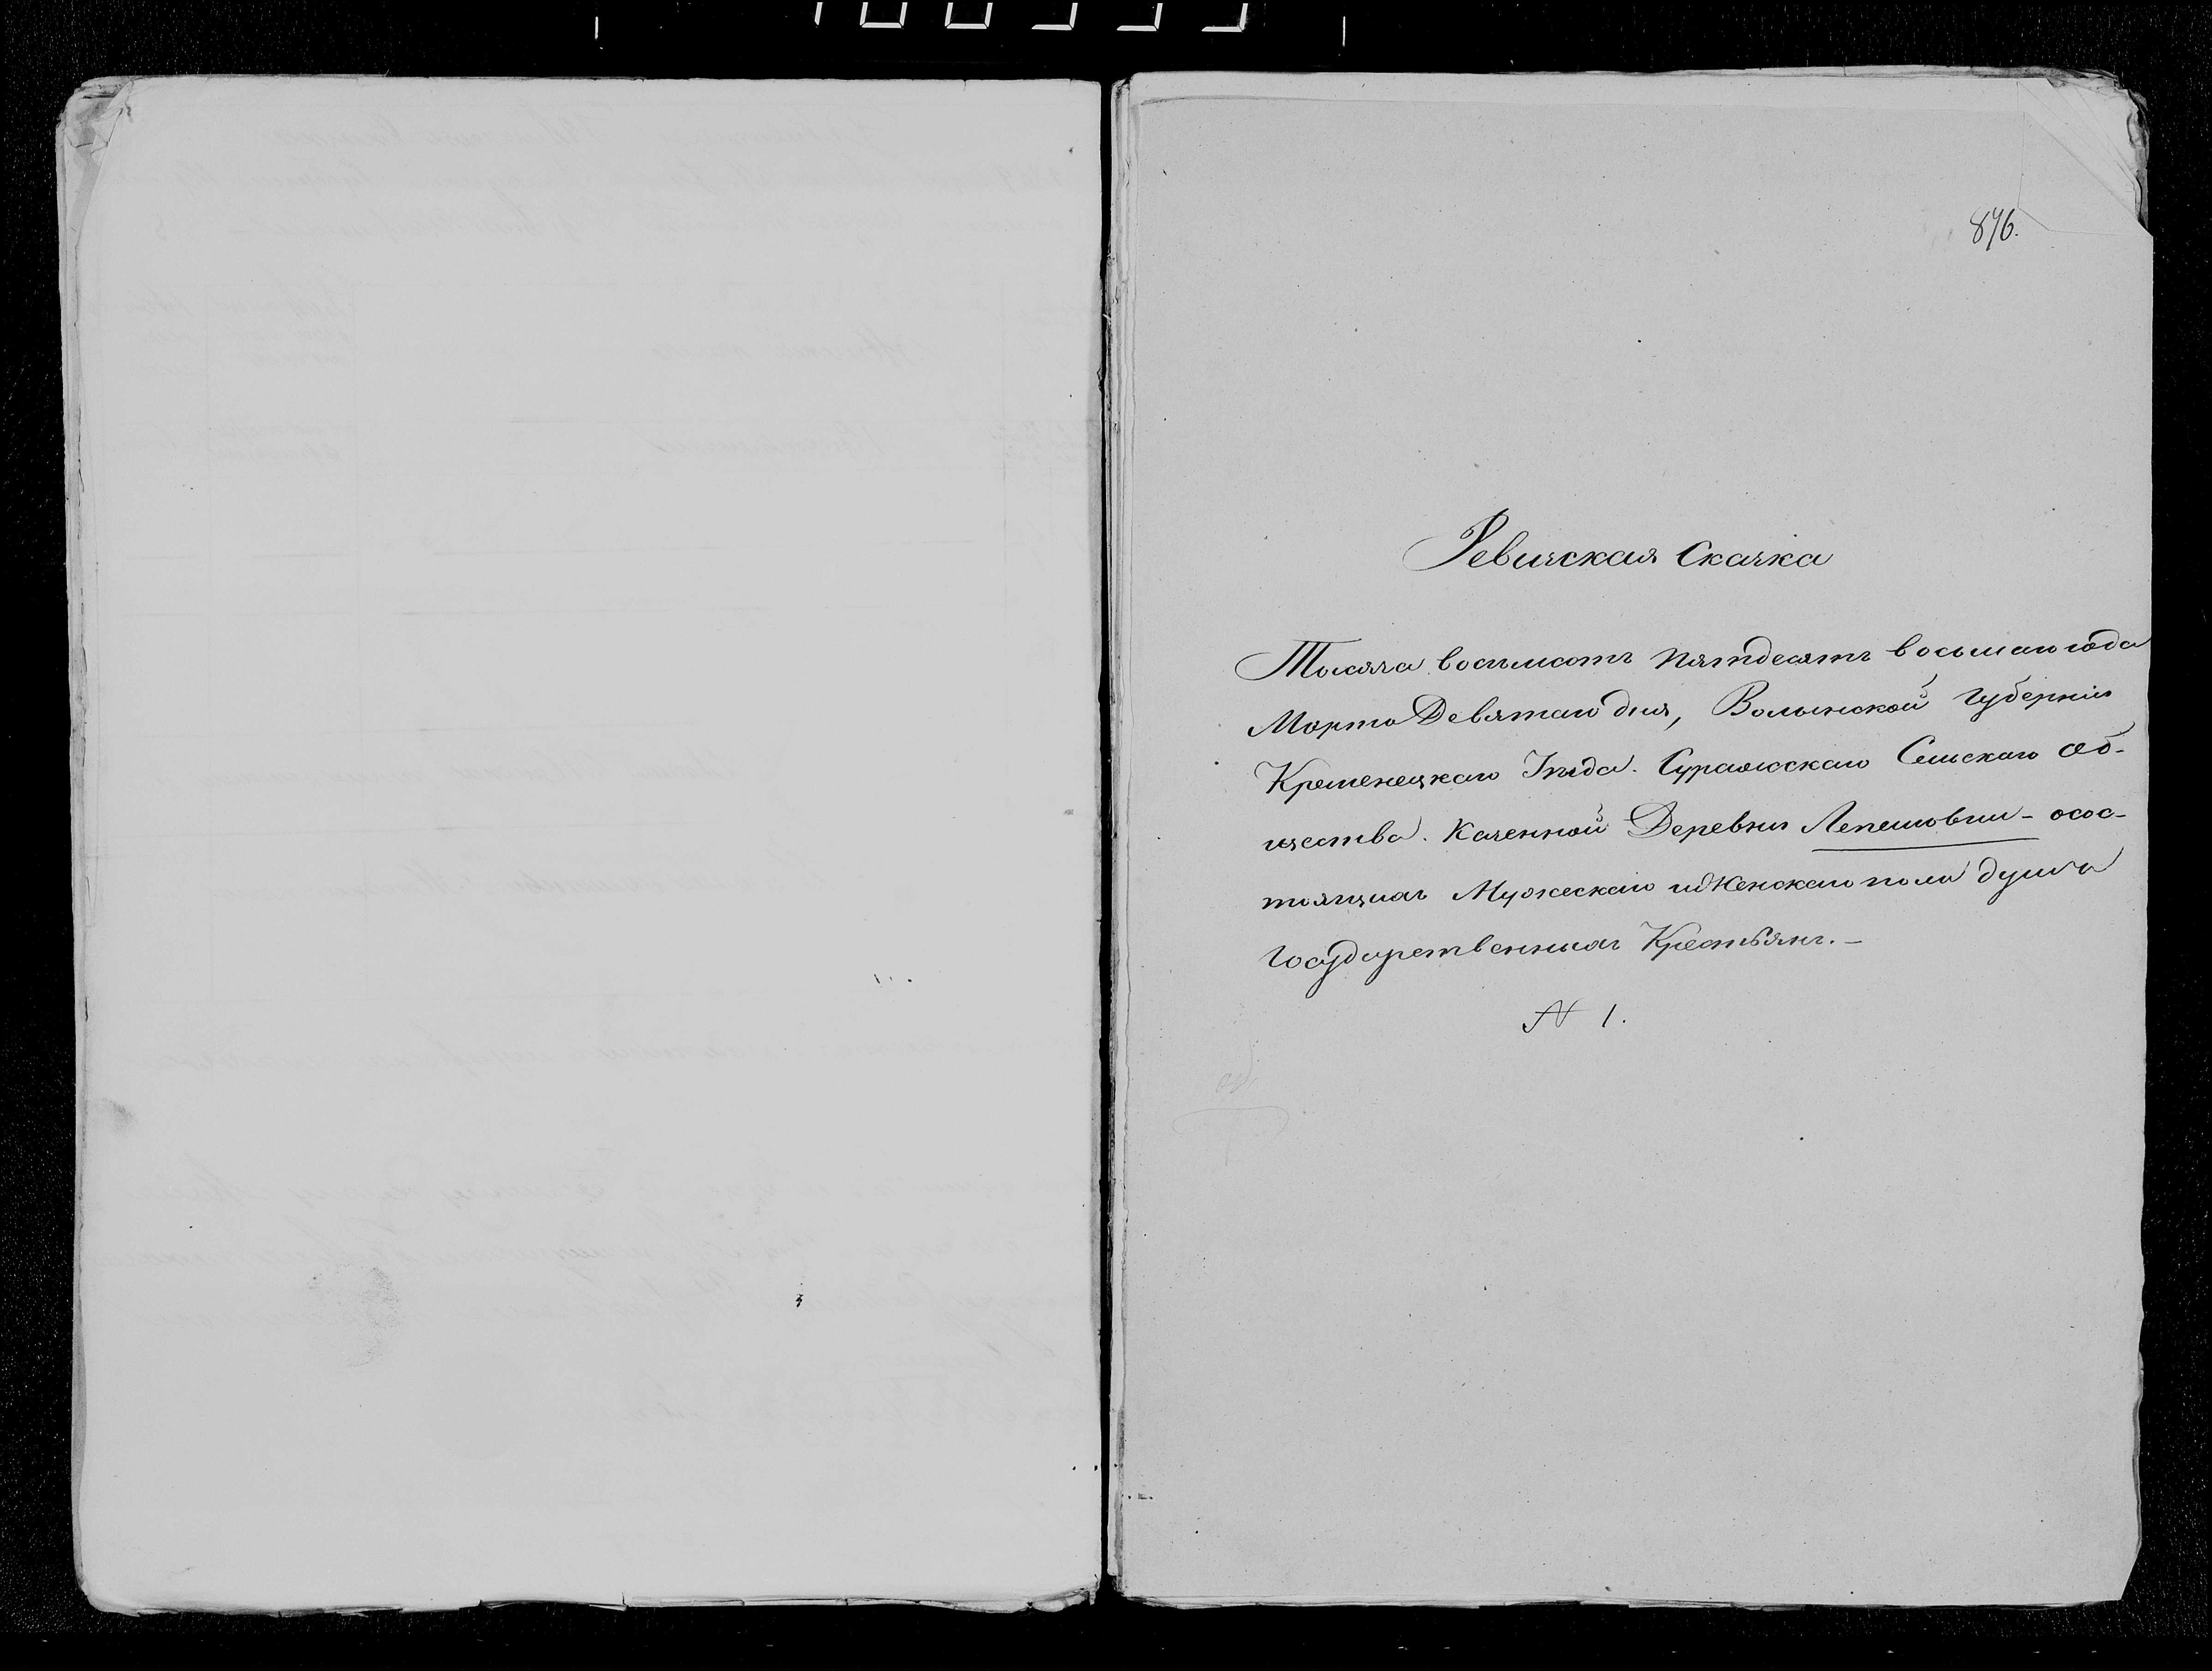 876.
Ревизская Сказка
Тысяча восемьсотъ пятдесятъ восьмаго года
Марта Девятаго дня, Волынской Губерніи
Кременецкаго Уѣзда. Суражскаго Сельскаго Об-
щества. Казенной Деревни Лепешовки - осос-
тоящихъ Мужескаго и Женскаго пола душъ
Государственныхъ Крестьянъ. -
№ 1.